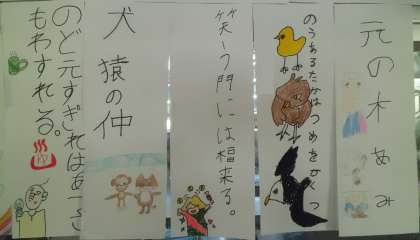 元の木あみ
のうあるたかはつめをかくす
笑う門には福来る。
犬猿の仲
のど元すぎればあつさ
もわすれる。